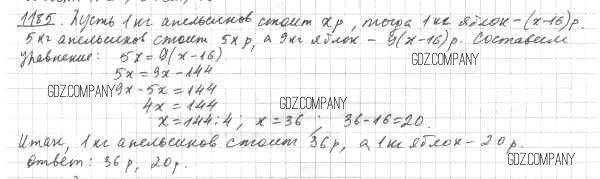 1185. Пусть 1 кг апельсинов стоит x р, тогда 1 кг яблок – (x-16) р.
5 кг апельсинов стоит 5x р, а 9 кг яблок – 9(x-16) р. Составим
уравнение: 5x = 9(x-16)
5x = 9x - 144
GDZ.COMPANY 9x - 5x = 144 GDZ.COMPANY
4x = 144 GDZ.COMPANY
x = 144 : 4 ; x = 36 ; 36 - 16 = 20.
Итак, 1 кг апельсинов стоит 36 р, а 1 кг яблок – 20 р.
Ответ: 36 р, 20 р. GDZ.COMPANY